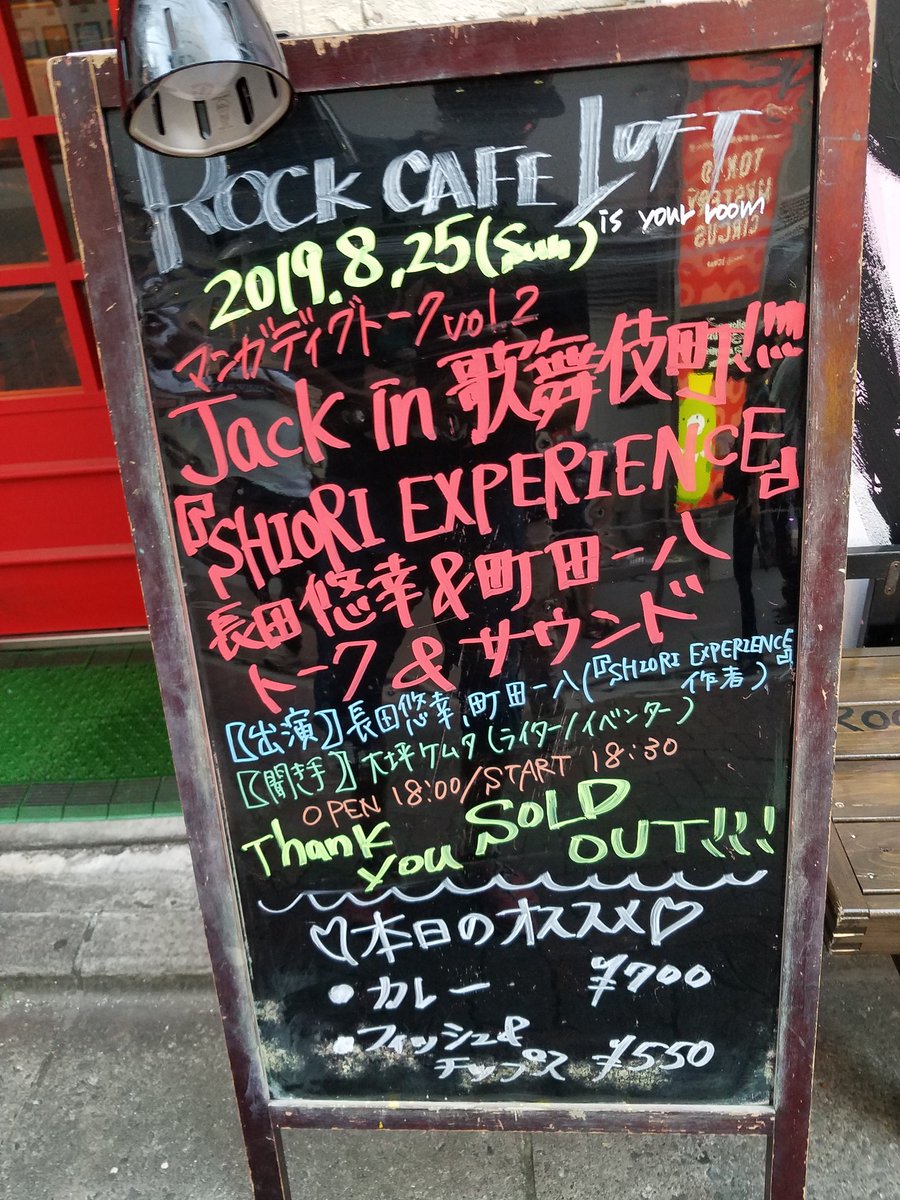 ROCK CAFE LOFT
is your room
2019.8.25(Sun)
マンガディグトークvol2
Jack in 歌舞伎町!!!!
『SHIORI EXPERIENCE』
長田悠幸&町田一八
トーク&サウンド
【出演】長田悠幸、町田一八(『SHIORI EXPERIENCE』
作者)
【聞き手】大坪ケムタ(ライター/イベンター)
OPEN 18:00/START 18:30
Thank you SOLD OUT!!!!
♡本日のオススメ♡
• カレー ¥700
• フィッシュ&
チップス ¥550
TOKYO
CIRCUS
ROC